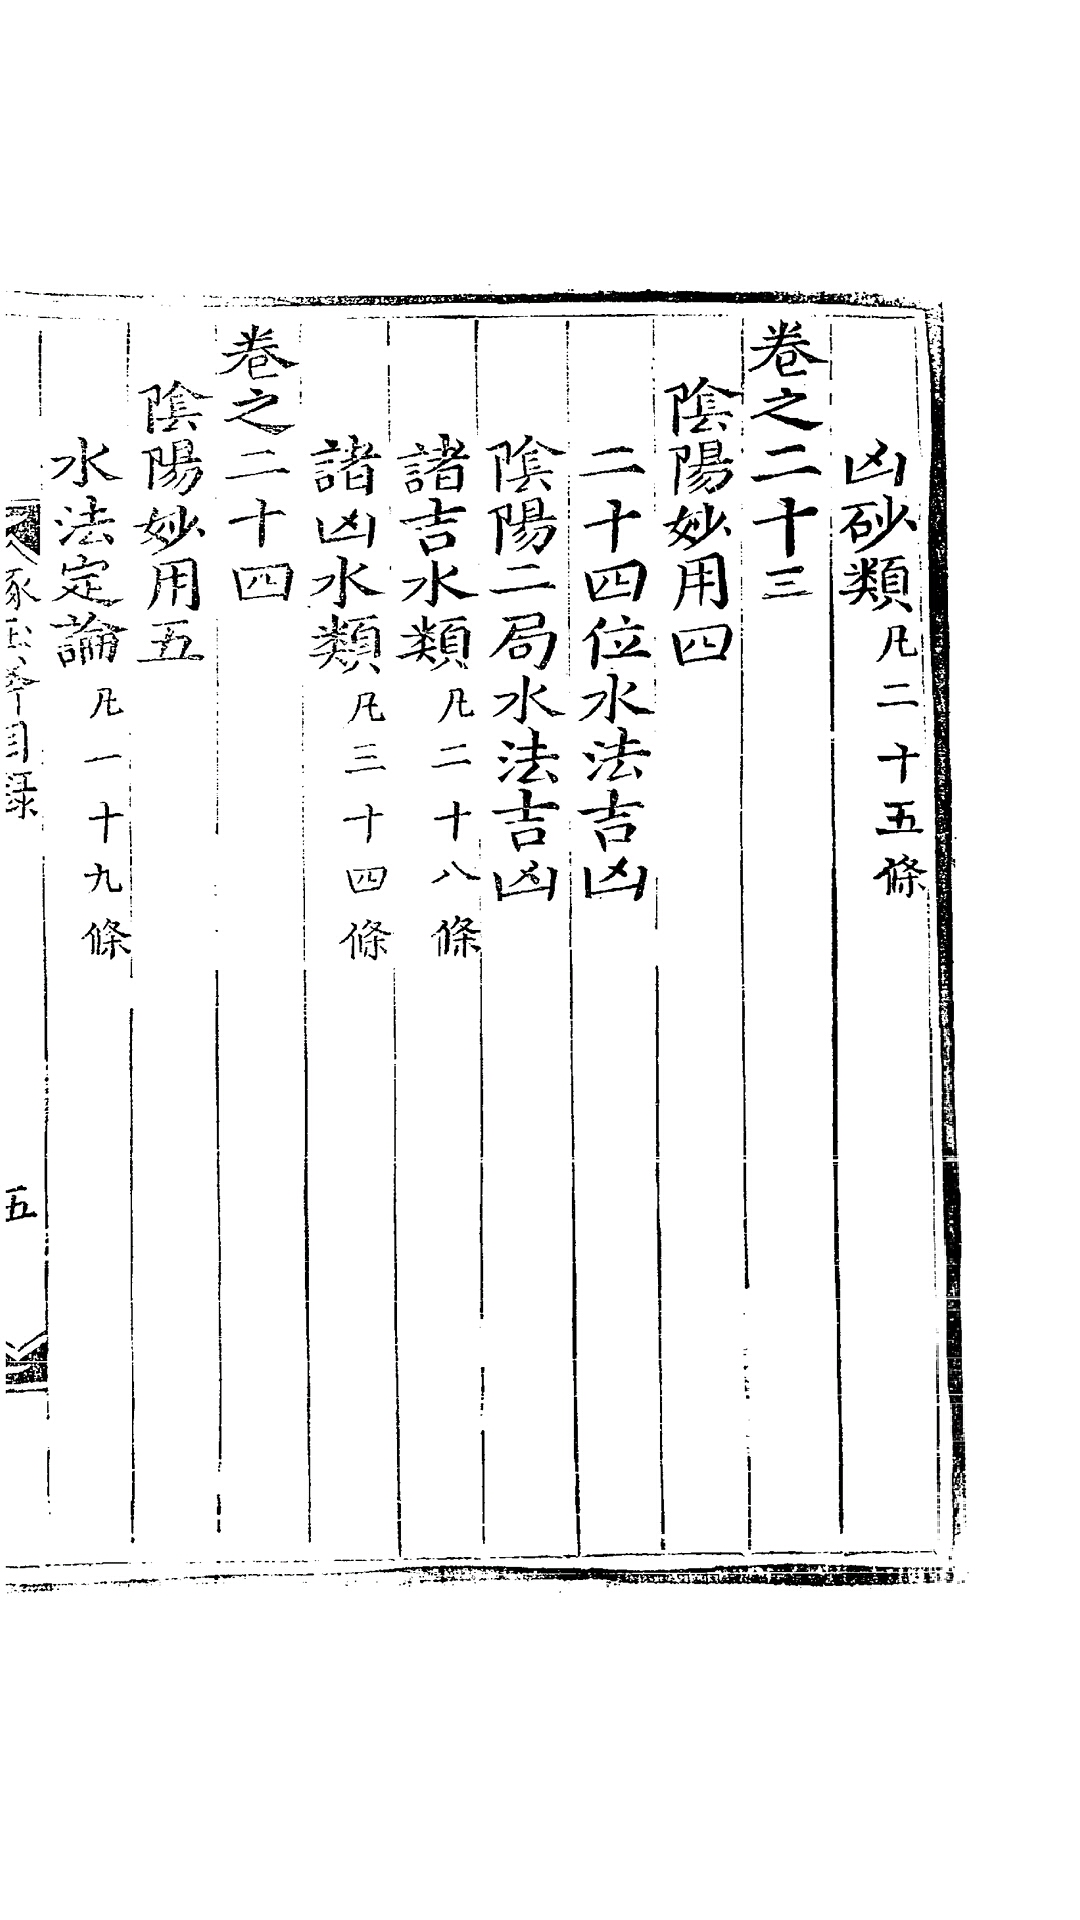 凶砂類凡二十五條
卷之二十三
陰陽妙用四
二十四位水法吉凶
陰陽二局水法吉凶
諸吉水類凡二十八條
諸凶水類凡三十四條
卷之二十四
陰陽妙用五
水法定論凡一十九條
目录
五